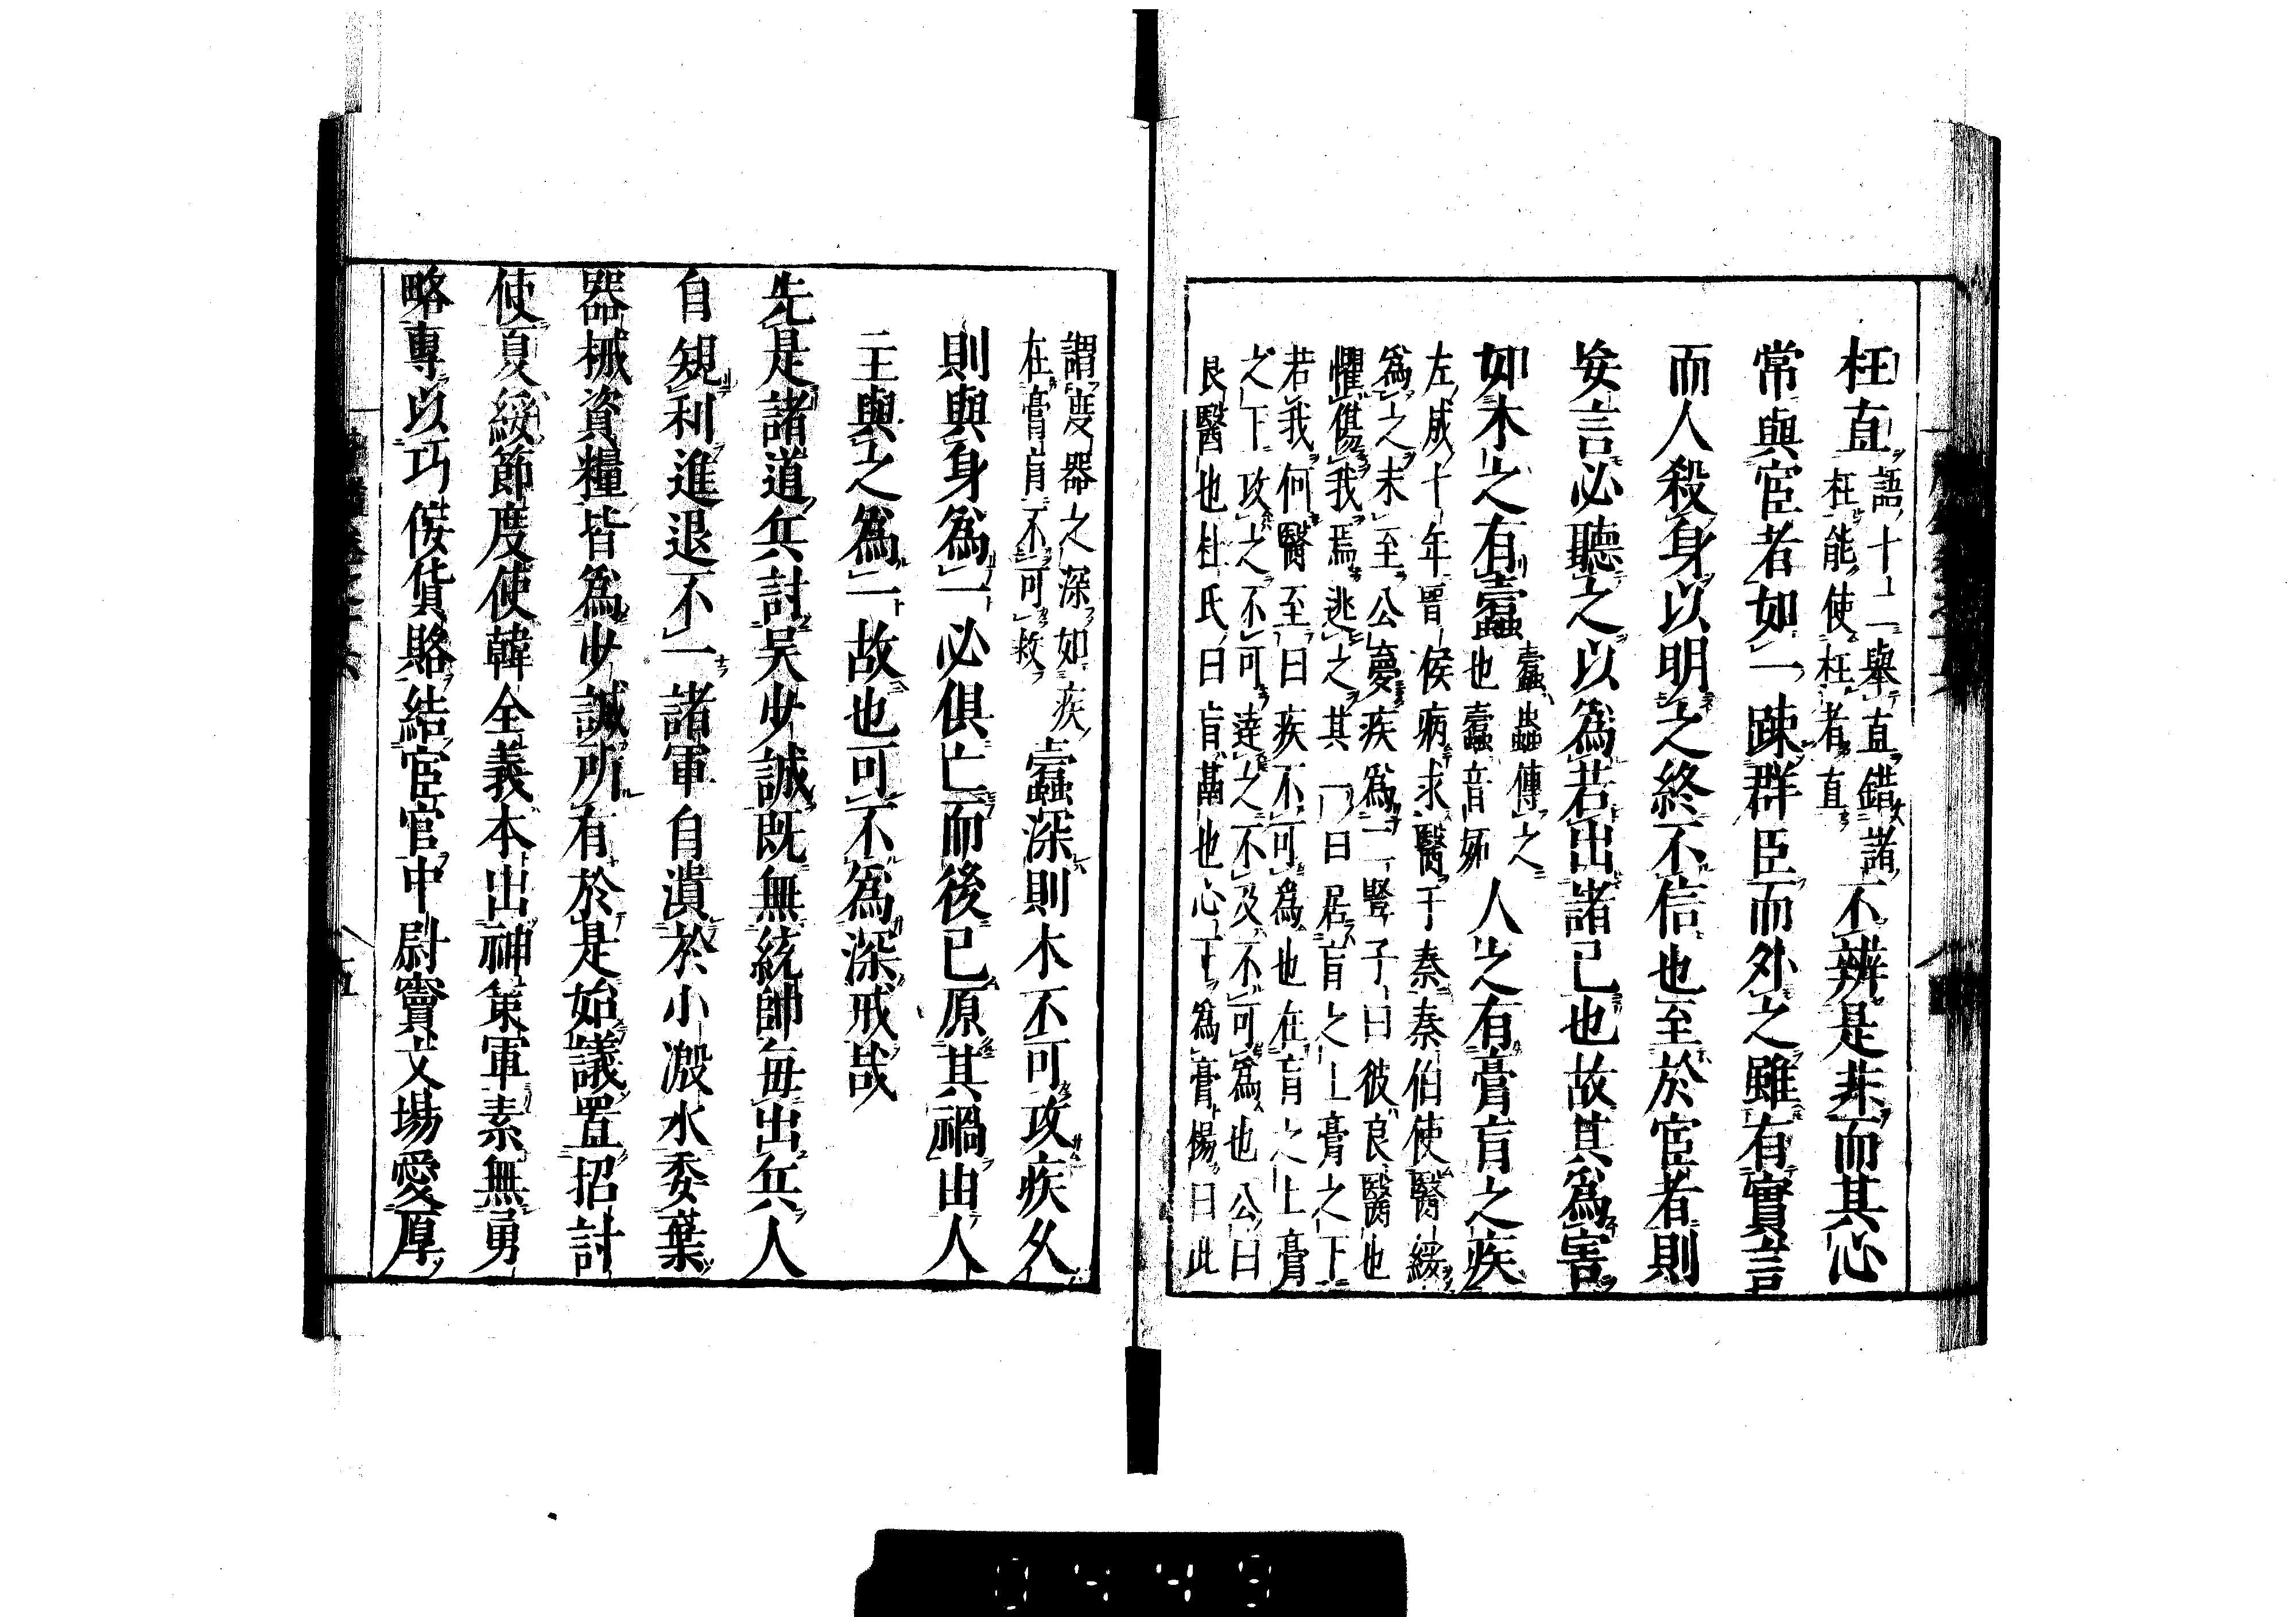 枉直語十二舉直錯諸枉能使枉者直不辨是非而其心
常與宦者如一疎群臣而外之雖有實言
而人殺身以明之終不信也至於宦者則
妄言必聽之以為若出諸己也故其為害
如木之有蠧蠧蟲傳之也蠧音妬人之有膏肓之疾
左成十年晉侯病求醫于秦秦伯使醫緩
為之未至公夢疾為二豎子曰彼良醫也
懼傷我焉逃之其一曰居肓之上膏之下
若我何醫至曰疾不可為也在肓之上膏
之下攻之不可達之不及不可為也公曰
良醫也杜氏曰肓鬲也心下為膏楊曰此
謂度器之深如疾在膏肓不可救蠧深則木不可攻疾久
則與身為一必俱亡而後已原其禍由人
主與之為一故也可不為深戒哉
先是諸道兵討吳少誠既無統帥每出兵人
自規利進退不一諸軍自潰於小溵水委棄
器械資糧皆為少誠所有於是始議置招討
使夏綏節度使韓全義本出神策軍素無勇
略專以巧佞貨賂結宦官中尉竇文場愛厚